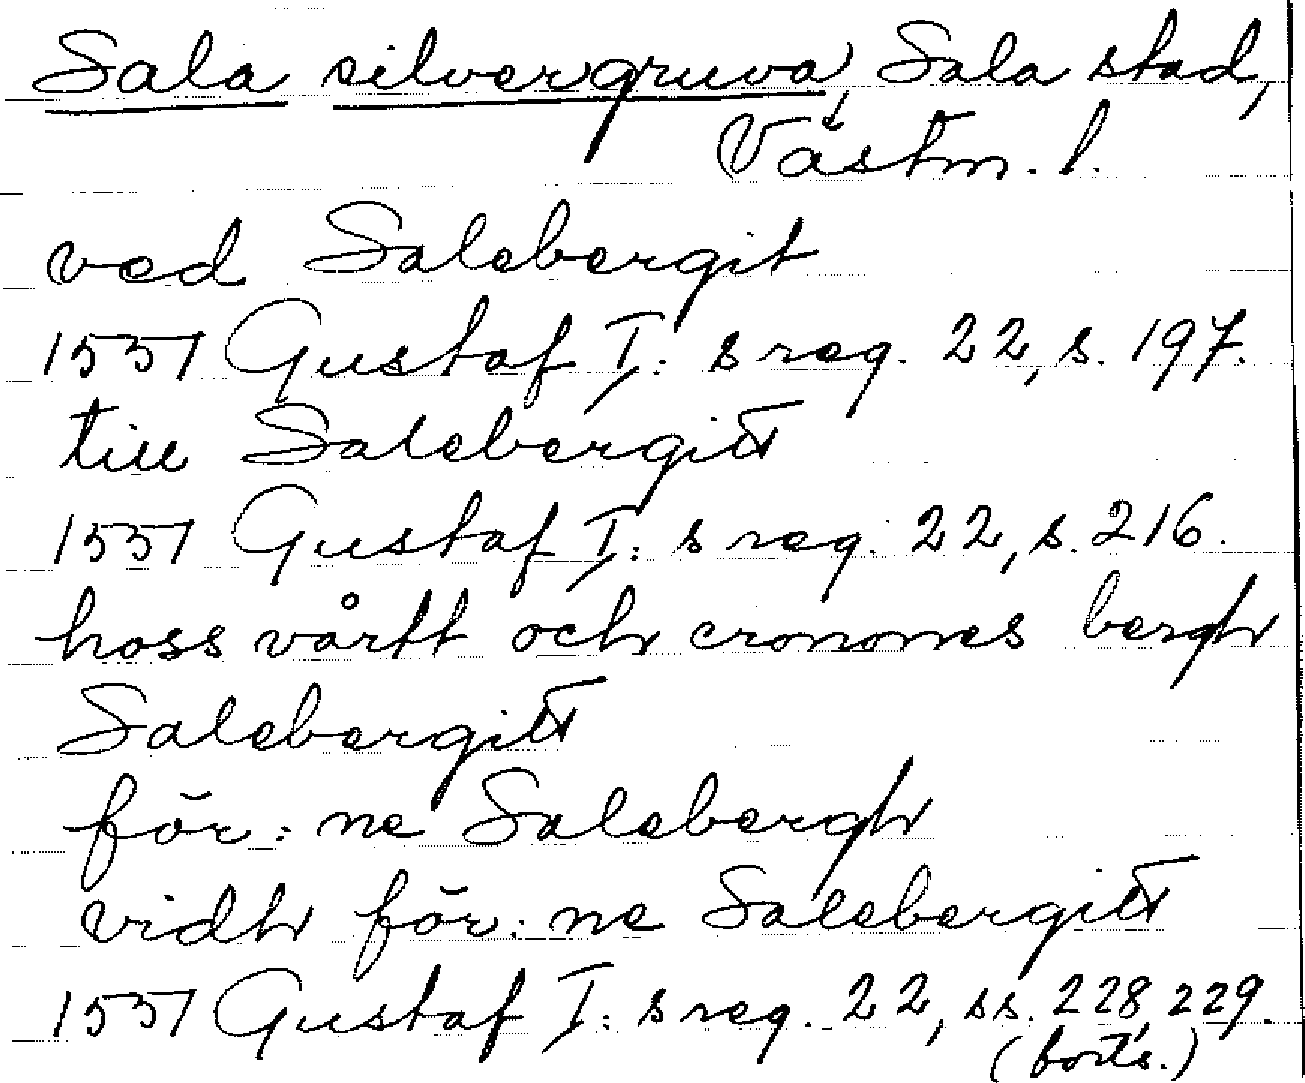 Sala silvergruva, Sala stad,
Västm. l.
ved Salebergit
1551 Gustaf I:s reg. 22, s. 197.
till Salebergitt
1551 Gustaf I:s reg. 22, s. 216.
hoss vårtt och cronones bergh
Salebergitt
för:ne Salebergh
vidh för:ne Salebergitt
1551 Gustaf I:s reg. 22, ss. 228, 229.
(forts.)